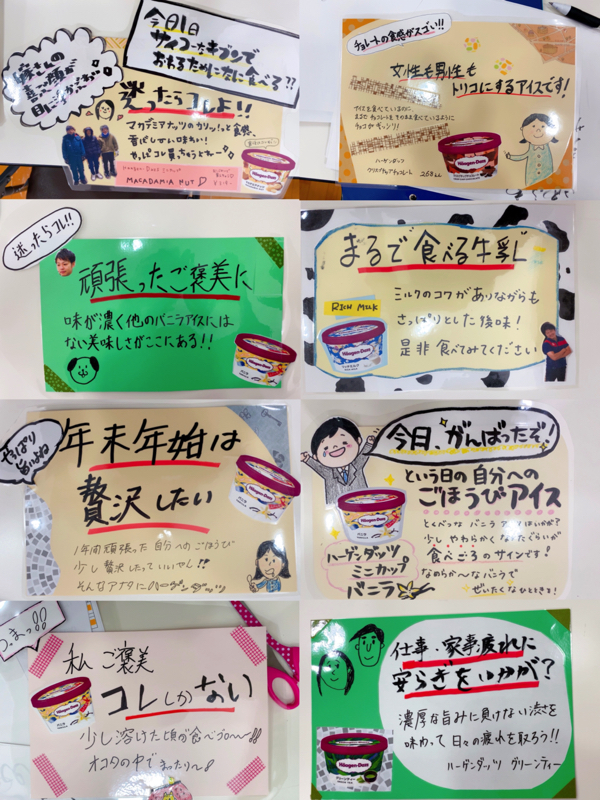 今日1日
サイコーなキブンで
おわるために何食べる??
迷ったらコレよ!!
マカデミアナッツのカリッ!と食感、
香ばしさ
Häagen-Dazs
MACADAMIA NUT
チョコレートの食感がスゴい!!
女性も男性も
トリコにするアイスです!
アイスを食べているのに、
まるでチョコレートをそのまま食べているように
ハーゲンダッツ
268
Häagen-Dazs
迷ったらコレ!!
頑張ったご褒美に
味が濃く他のバニラアイスには
ない美味しさがここにある!!
Häagen-Dazs
まるで食べる牛乳
RICH MILK
ミルクのコクがありながらも
さっぱりとした後味!
是非食べてみてください
Häagen-Dazs
やっぱり
旨いよね
年末年始は
贅沢したい
1年間頑張った自分へのごほうび
少し贅沢したっていいやん!!
そんなアナタにハーゲンダッツ
Häagen-Dazs
今日、がんばったぞ!
という日の自分への
ごほうびアイス
とくべつなバニラアイスはいかが?
少しやわらかくなったぐらいが
食べごろのサインです!
なめらか〜なバニラで
ぜいたくなひとときを!
ハーゲンダッツ
ミニカップ
バニラ
Häagen-Dazs
私ご褒美
コレしかない
少し溶けた頃が食べごろ〜!!
オコタの中でまったり〜
Häagen-Dazs
仕事、家事疲れに
安らぎをいかが?
濃厚な旨みに負けない渋さを
味わって日々の疲れを取ろう!!
ハーゲンダッツ グリーンティー
Häagen-Dazs